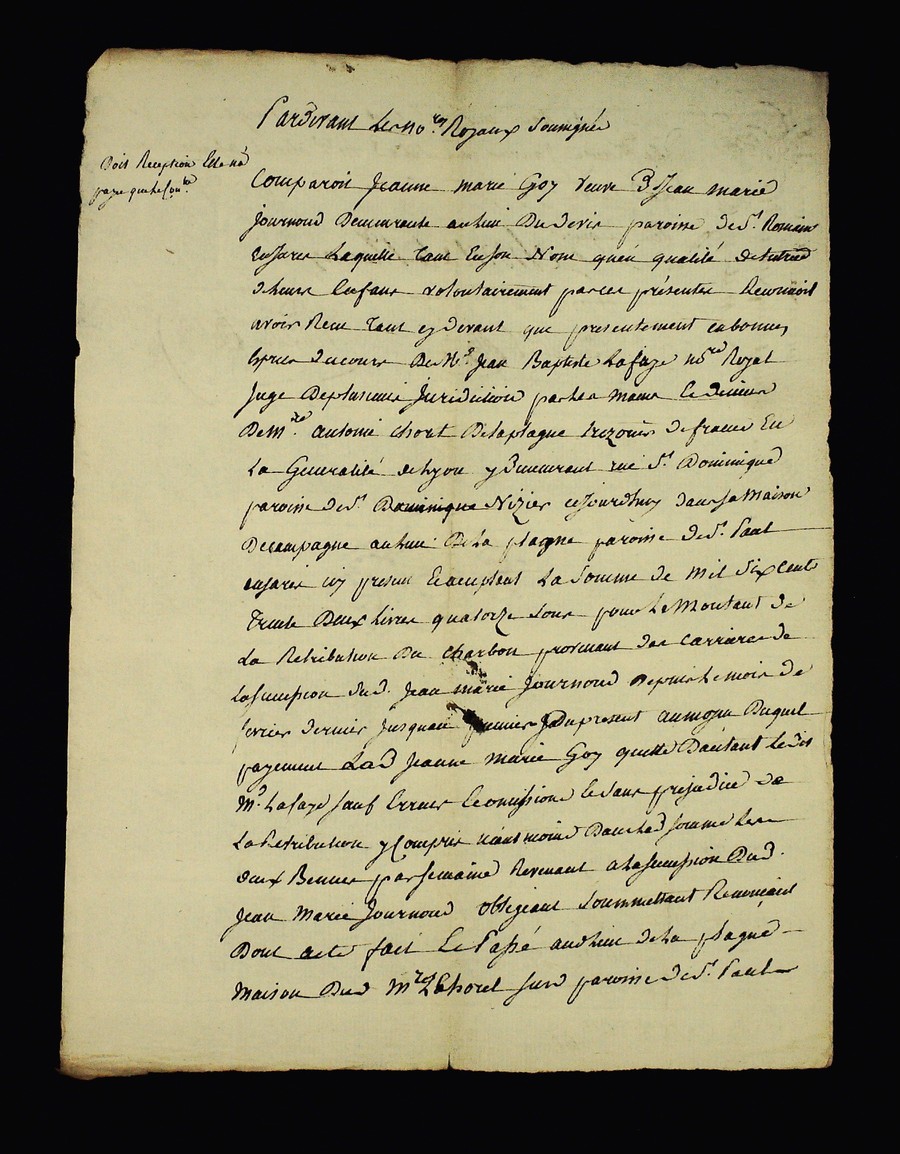 Pardevant les no.res Royaux soussignés
Doit Reception Elle na
paye que le
Comparoit Jeanne marie Goy veuve de Jean marie
Journoud Demeurante au lieu Du devis paroisse de st Romain
en Jares Laquelle tant en son Nom qu'en qualité de tutrice
de leurs Enfans volontairement par ces présentes Reconnoit
avoir Reçu tant cy devant que presentement en bonnes
Espèces de cours De Me. Jean Baptiste Lafaye nore Royal
Juge De plusieurs Juridiction par les mains Et deniers
De Mre. antoine chorel De la plagne trezorier de france En
La Generalité de Lyon y Demeurant rue st. Dominique
paroisse de st. Dominique Nizier cejourdhuy dans sa Maison
De campagne au lieu De La plagne paroisse de st. Paul
en jares icy present Et acceptant La somme de Mil six Cents
Trente Deux Livres quatorze sous pour Le Montant de
La Retribution Du charbon provenant des Carrieres de
La succession dud. Jean marie Journoud Depuis Le mois de
fevrier dernier jusquau premier du present au moyen Duquel
payement Lad Jeanne marie Goy quitte D'autant Ledit
Me. Lafaye sauf Erreur Et omissions Et sans prejudice de
La Retribution y Compris néantmoins Dans Lad somme Les
deux Bennes par semaine Revenant a La succession Dud.
Jean Marie Journoud obligeant soummettant Renonçant
Dont acte fait Et Passé aud lieu de La plagne
Maison Dud Mre Chorel susd paroisse de st. Paul